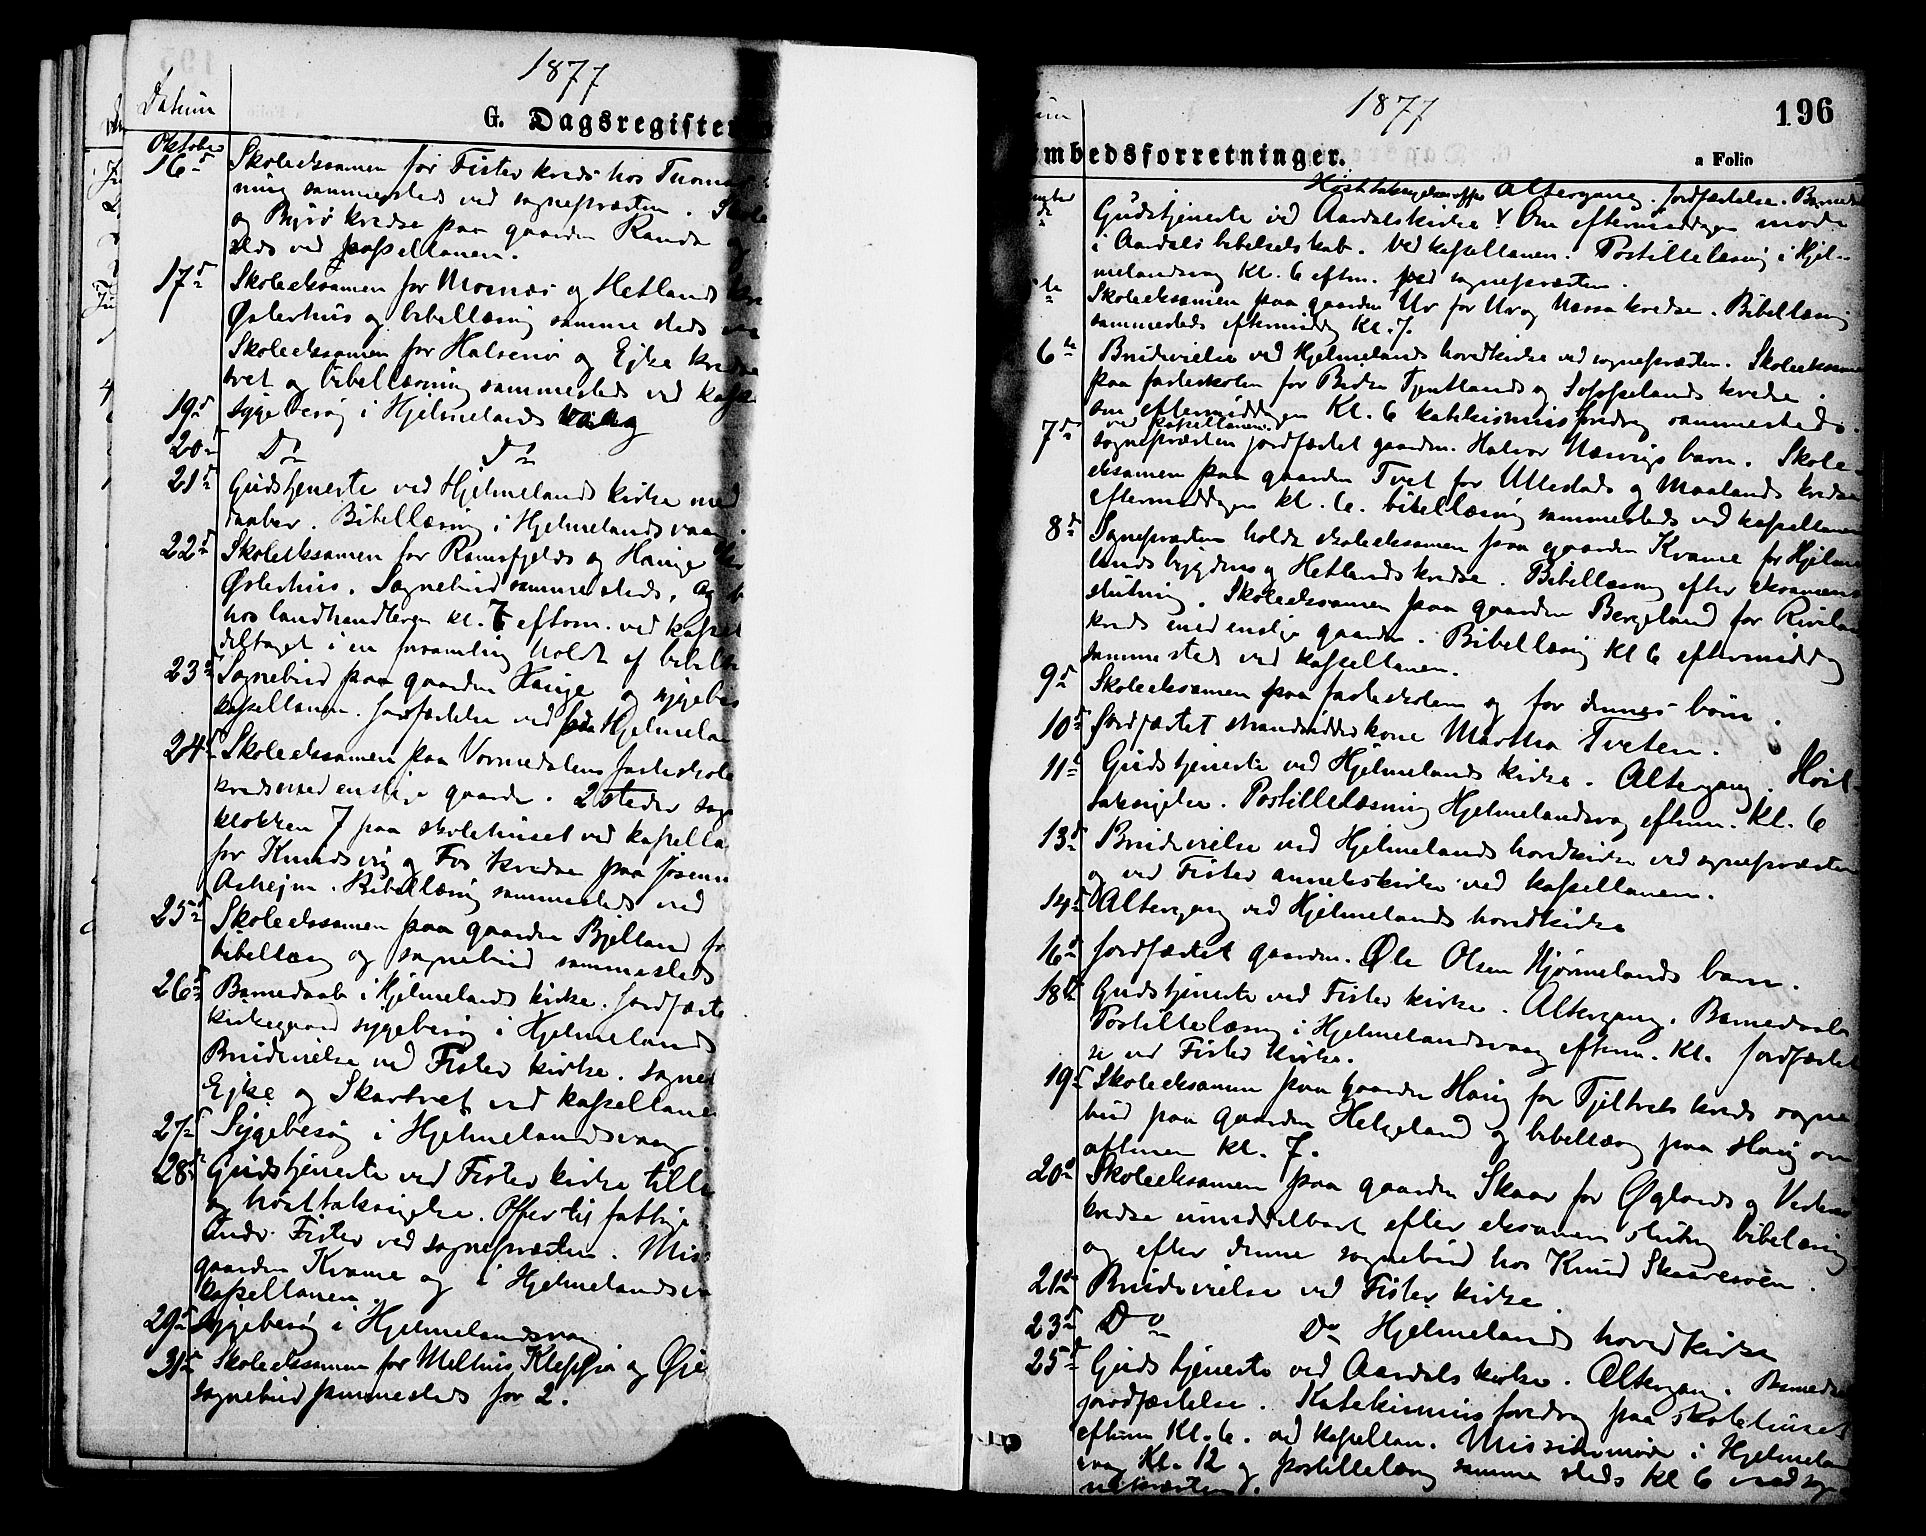 1877
Datum
G. Dagsregister
Oktober
16d Skoleeksamen for Fister kreds hos Thomas
ning sammesteds ved sognepræsten. Skole
og Byrö kredse paa gaarden Randa og
steds ved kapellanen.
17d Skoleeksamen for Mosnæs og Hetlands kre
Østerhus og bibellæsning samme steds
Skoleeksamen for Halsenö og Ejke kredse
tvet og bibellæsning sammesteds ved kape
19d sygebesøg i Hjelmelands vaag
20d Do Do
21d Gudstjeneste ved Hjelmelands kirke med
daaber. Bibellæsning i Hjelmelandsvaag
22d Skoleeksamen for Ramsfjelds og Hauge
Østerhus. Sognebud sammesteds. Og
hos landhandleren kl. 7 eftern. ved kapel
deltaget i en forsamling holdt af bibelb
23d Sognebud paa gaarden Hauge og sygebes
kapellanen. Jordfæstelse ved Hjelmelan
24d Skoleeksamen paa Vormedalens fasteskole
kreds med enslige gaarde. 2 steder sogn
klokken 7 paa skolehuset ved kapella
for Knudsvig og Fos kredse paa Jösenn
Askejm. Bibellæsning sammesteds ved
25d Skoleeksamen paa gaarden Bjelland fo
bibellæsng og sognebud sammesteds
26d Barnedaab i Hjelmelands kirke. Jordfæste
kirkegaard sygebesøg i Hjelmelands
Brudevielse ved Fister kirke. sogneb
Ejke og Skartvet ved kapellane
27d Sygebesøg i Hjelmelandsvaag.
28d Gudstjeneste ved Fister kirke tillig
og hösttaksigelse. Offer til fattige
Fister ved sognepræsten. Miss
gaarden Kvame og i Hjelmelandsv
kapellanen.
29d sygebesøg i Hjelmelandsvaag
31d Skoleeksamen for Melhus, Kleppa og Øje
sognebud sammesteds for 2.
1877
196
mbedsforretninger.
a Folio
Hösttaksigelsesoffer Altergang. Jordfæstelse. Barned
Gudstjeneste ved Aardals kirke Om eftermiddagen möde
i Aardals bibelselskab. Ved kapellanen. Postillelæsning i Hjel-
melandsvaag kl. 6 eftm. ved sognepræsten.
Skoleeksamen paa gaarden Ur for Ur og Nessa kredse. Bibellæsning
sammesteds eftermiddg kl. 7.
6te Brudevielse ved Hjelmelands hovedkirke ved sognepræsten. Skoleeksam
paa fasteskolen for Tjentlands og kredse.
om eftermiddagen kl. 6 katekismusforedrag sammesteds.
ved kapellanen
7d sognepræsten jordfæstet gaardm. Halvor barn. Skole-
eksamen paa gaarden Tvet for Ullestads og Maalands kredse
eftermiddagen kl. 6. bibellæsning sammesteds ved kapellanen
8d Sognepræsten holdt skoleeksamen paa gaarden Kvame for Hjelme
landsbygdens og Hetlands kredse. Bibellæsning efter eksamens
slutning. Skoleeksamen paa gaarden Bergeland for Rivelan
kreds med enslige gaarde. Bibellæsng kl 6 eftermiddg
sammesteds ved kapellanen.
9d Skoleeksamen paa fasteskolen og for dennes börn.
10d Jordfæstet strandsidderkone Martha Tveten.
11d Gudstjeneste ved Hjelmelands kirke. Altergang. Höst-
taksigelse. Postillelæsning Hjelmelandsvaag eftm. kl. 6
13d Brudevielse ved Hjelmelands hovedkirke ved sognepræsten
og ved Fister annekskirke ved kapellanen.
14d Altergang ved Hjelmelands hovedkirke
16d Jordfæstet gaardm. Ole Olsen Hjörnelands barn.
18d Gudstjeneste ved Fister kirke. Altergang. Barnedaab
Postillelæsng i Hjelmelandsvaag eftm. kl. Jordfæstel
se ved Fister kirke.
19d Skoleeksamen paa gaarden Haug for Tjeltvets kreds sogne
bud paa gaarden Helgeland og bibellæsng paa Haug om
aftenen kl. 7.
20d Skoleeksamen paa gaarden Skaar for Øglands og Vesterv
kredse umiddelbart efter eksamens slutng bibellæsning
og efter denne sognebud hos Knud Skaaresöen.
21d Brudevielse ved Fister kirke.
23d Do Do Hjelmelands hovedkirke
25d Gudstjeneste ved Aardals kirke. Altergang. Barneda
jordfæstelse. Katekismusforedrag paa skolehuset
eftm kl. 6. ved kapellan. Missionsmöde i Hjelmelan
vaag kl. 12 og postillelæsng samme steds kl 6 ved sog
nepræsten.